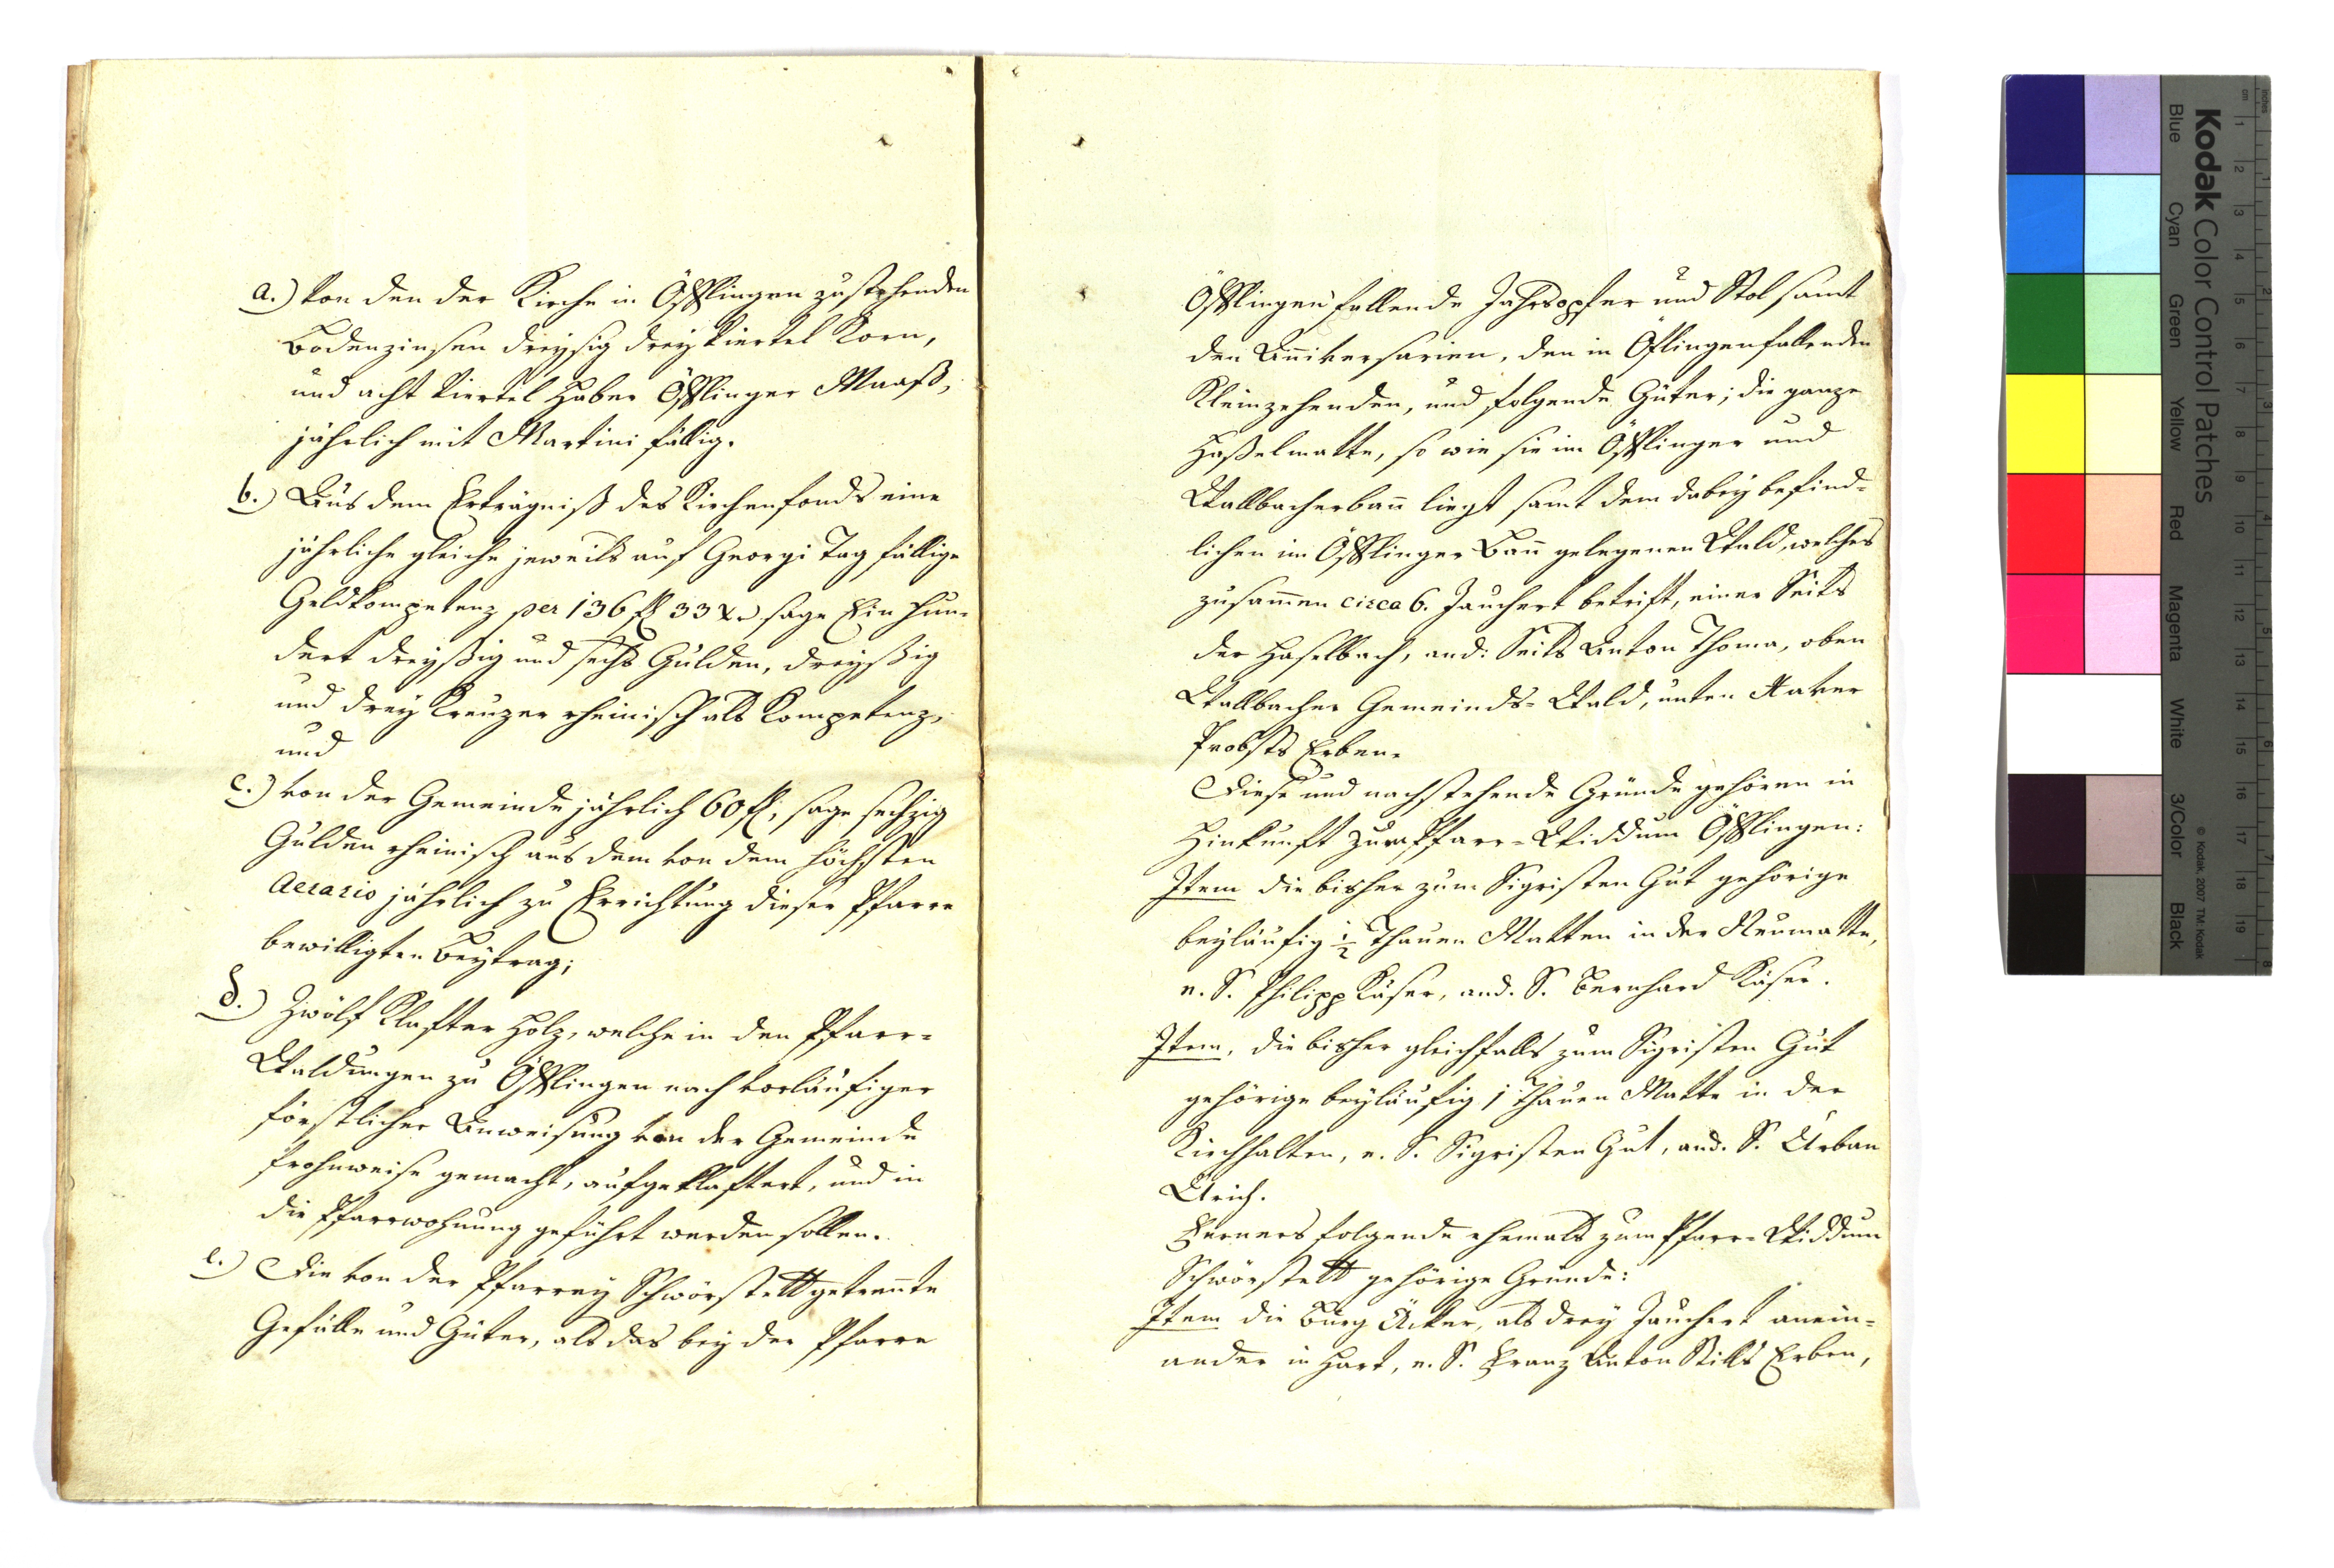 a.) von den der Kirche in Öfflingen zustehenden
Bodenzinsen dreysig drey Viertel Korn,
und acht Viertel Haber Öfflinger Maaß,
jährlich mit Martini fällig.
b.) Aus dem Erträgniß des Kirchenfonds eine
jährliche gleiche jeweils auf Georgi Tag fällige
Geldkompetenz per 136 fl 33 x. sage Ein hun-
dert dreyßig und sechs Gulden, dreyßig
und drey Kreuzer rheinisch als Kompetenz,
und
c.) von der Gemeinde jährlich 60 fl, sage sechzig
Gulden rheinisch aus dem von dem höchsten
Aerario jährlich zu Errichtung dieser Pfarre
bewilligten Beytrag;
d.) Zwölf Klafter Holz, welche in den Pfarr-
Waldungen zu Öfflingen nach vorläufiger
förstlicher Anweisung von der Gemeinde
frohnweise gemacht, aufgeklaftert, und in
die Pfarrwohnung geführt werden sollen.
e.) Die von der Pfarrey Schwörstett getrennte
Gefälle und Güter, als das bey der Pfarre
Öfflingen fallende Jahrsopfer und Stol samt
den Anniversarien, den in Öflingen fallenden
Kleinzehenden, und folgende Güter; die ganze
Haßelmatte, so wie sie im Öfflinger und
Wallbacherbann liegt samt dem dabey befind-
lichen im Öfflinger Bann gelegenen Wald, welches
zusammen circa 6. Jauchert betrift, einer Seits
der Haselbach, and: Seits Anton Thoma, oben
Wallbacher Gemeinds-Wald, unten Xaver
Probsts Erben.
Diese und nachstehende Gründe gehören in
Hinkunft zur Pfarr-Widdum Öfflingen:
Item die bisher zum Sigristen Gut gehörige
beyläufig 1/2 Thauen Matten in der Neumatte,
e. S. Philipp Käser, and. S. Bernhard Käser.
Item, die bisher gleichfalls zum Sigristen Gut
gehörige beyläufig 1 Thauen Matte in der
Kirchhalten, e. S. Sigristen Gut, and. S. Urban
Ulrich.
Ferners folgende ehemals zum Pfarr-Widdum
Schwörstett gehörige Gründe:
Item die Burg Äcker, als drey Jauchert anein-
ander in Hart, e. S. Franz Anton Stills Erben,
Kodak Color Control Patches
Blue Cyan Green Yellow Red Magenta White 3/Color Black
© Kodak, 2007 TM: Kodak
cm 1 2 3 4 5 6 7 8 9 10 11 12 13 14 15 16 17 18 19
inches 1 2 3 4 5 6 7 8